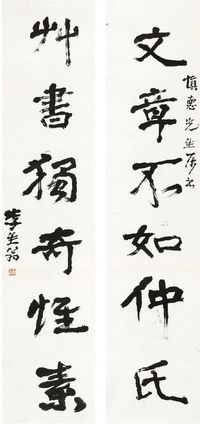 文章不如仲氏
慎惠先生属书
艸書獨奇惟素
李生翁